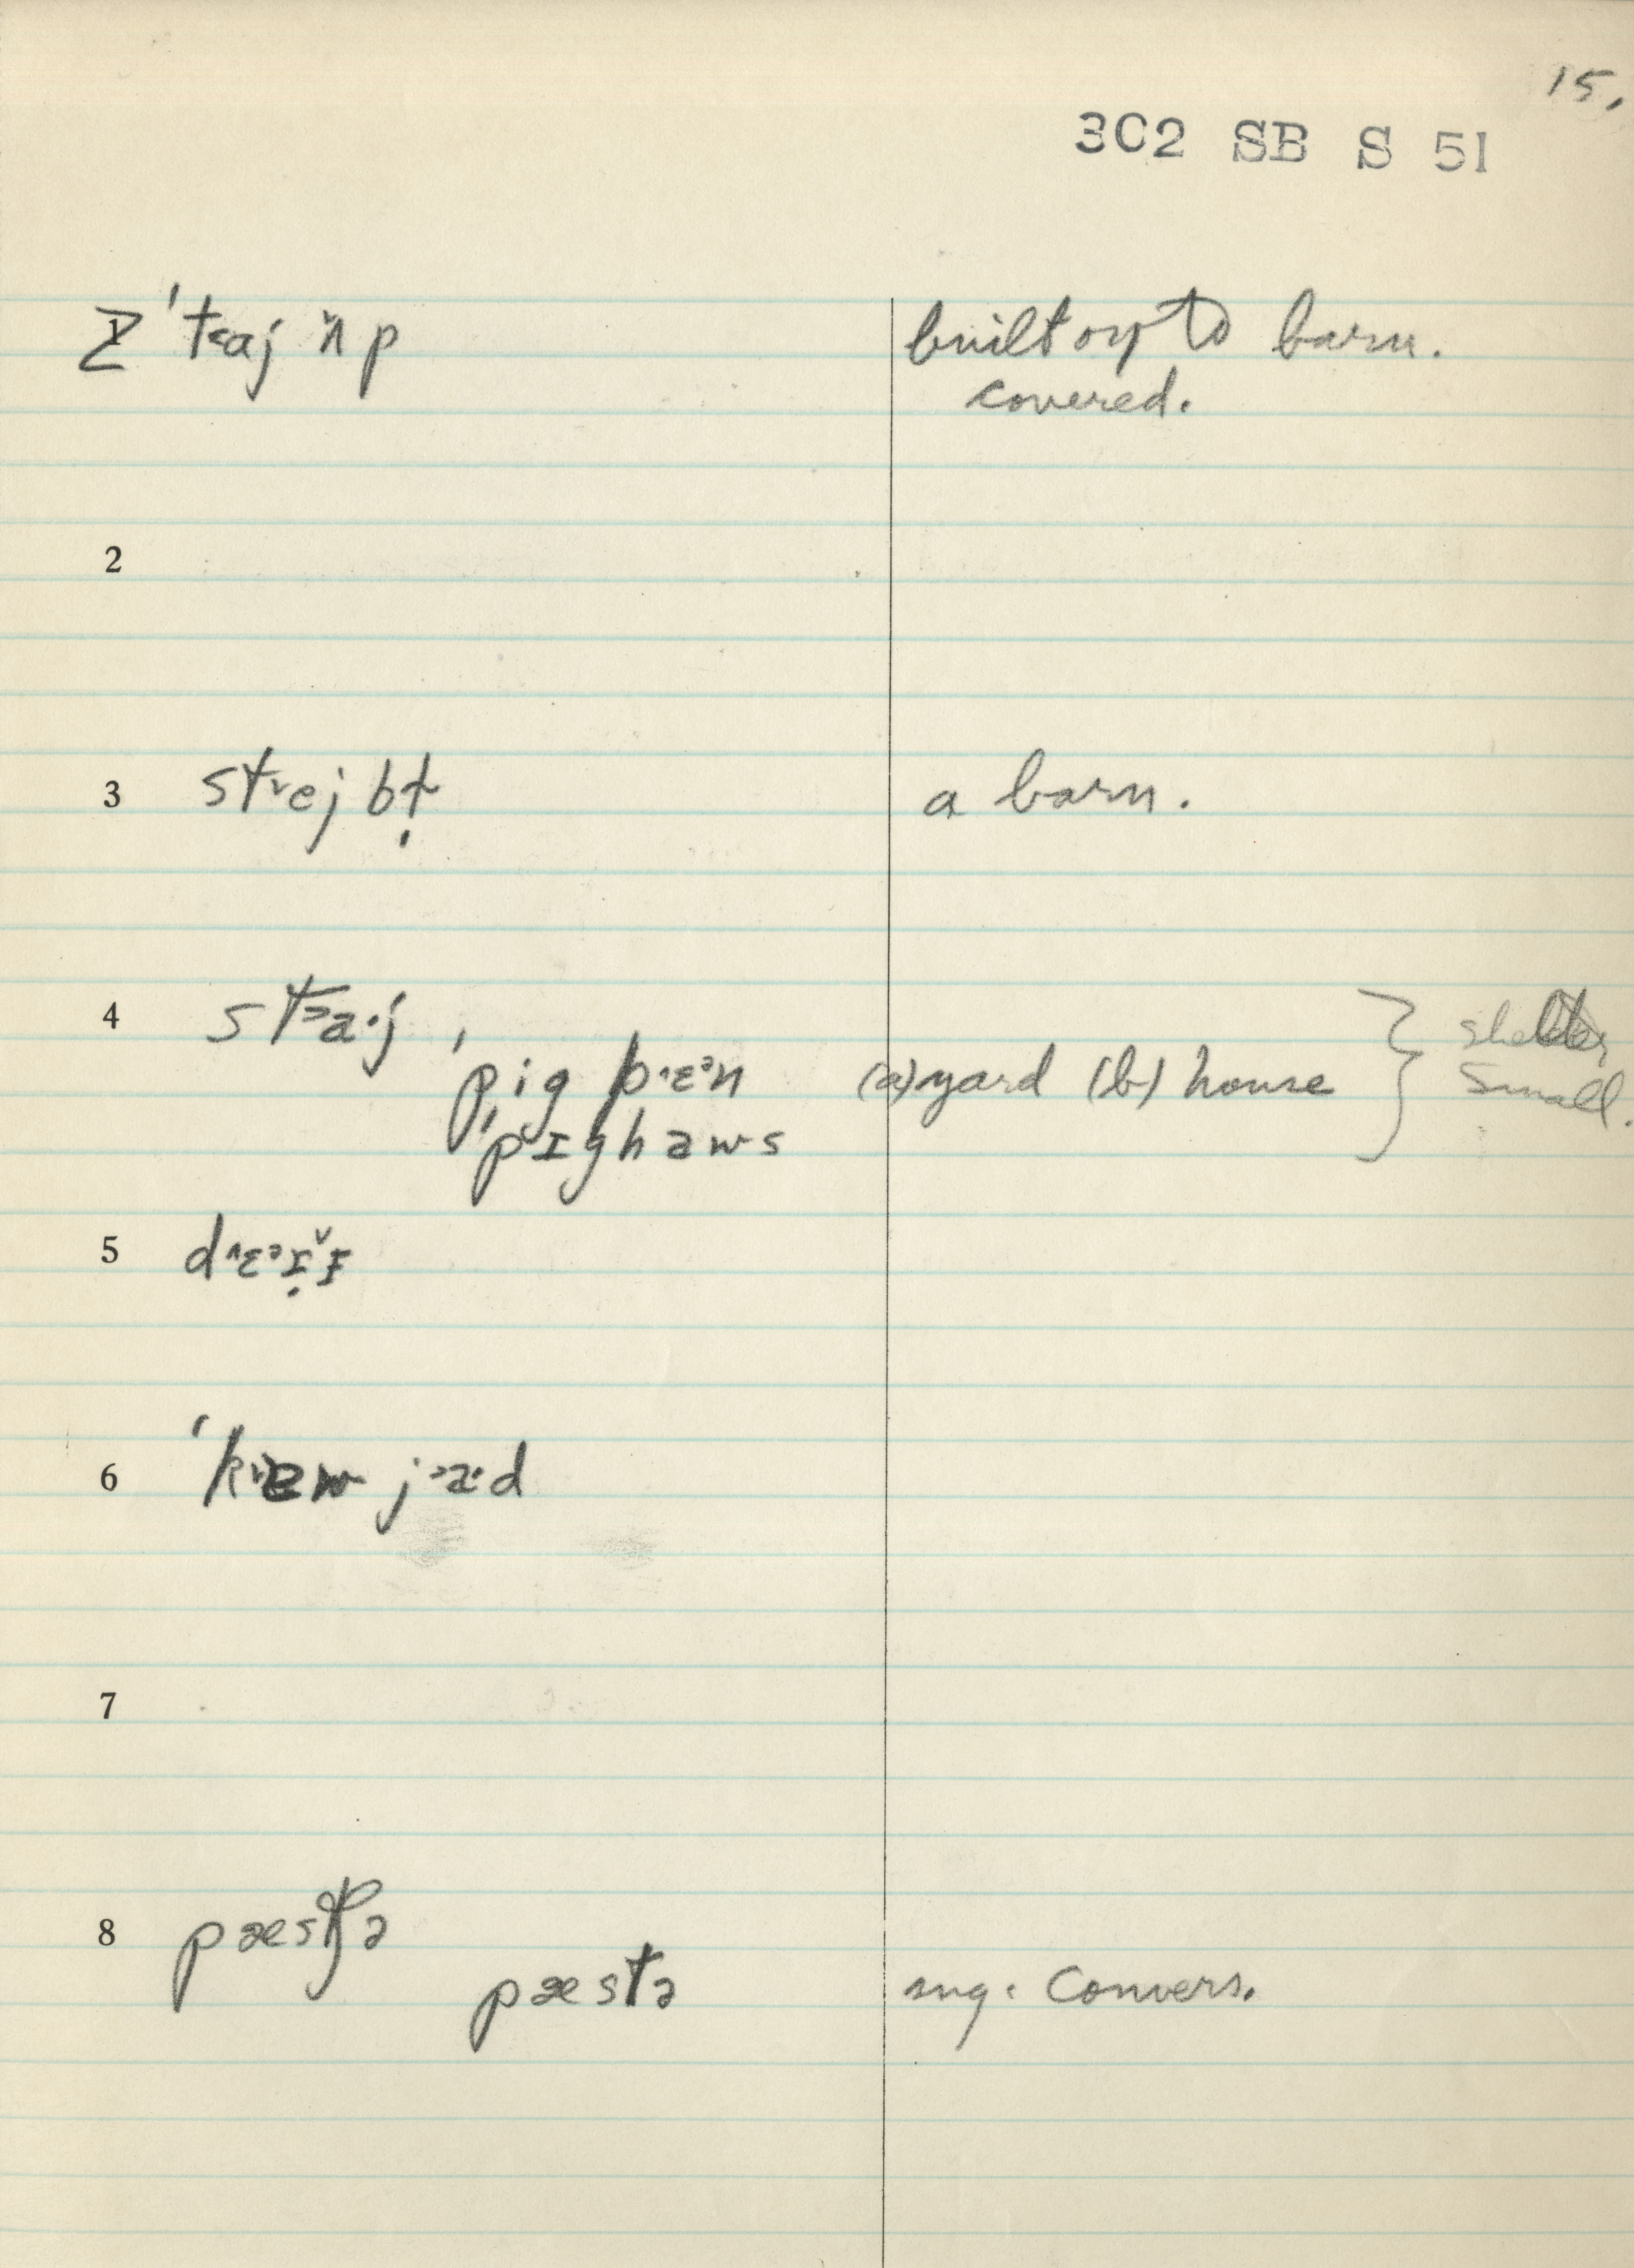 15.
302 SB S 51
1 ˈt˂aj ʌ̌p built on to barn.
covered.
2
3 st˅ej bɫ̩ a barn.
4 st˃a·j
ˈpig p˄ɛᵊn (a) yard (b) house } shelter
ˈpɪghaws small.
5 d˄ɛᵊɪ̣̌
6 ˈk˅ɛw j˃a·d
7
8 pæstʃə
pæstə sug. Convers.